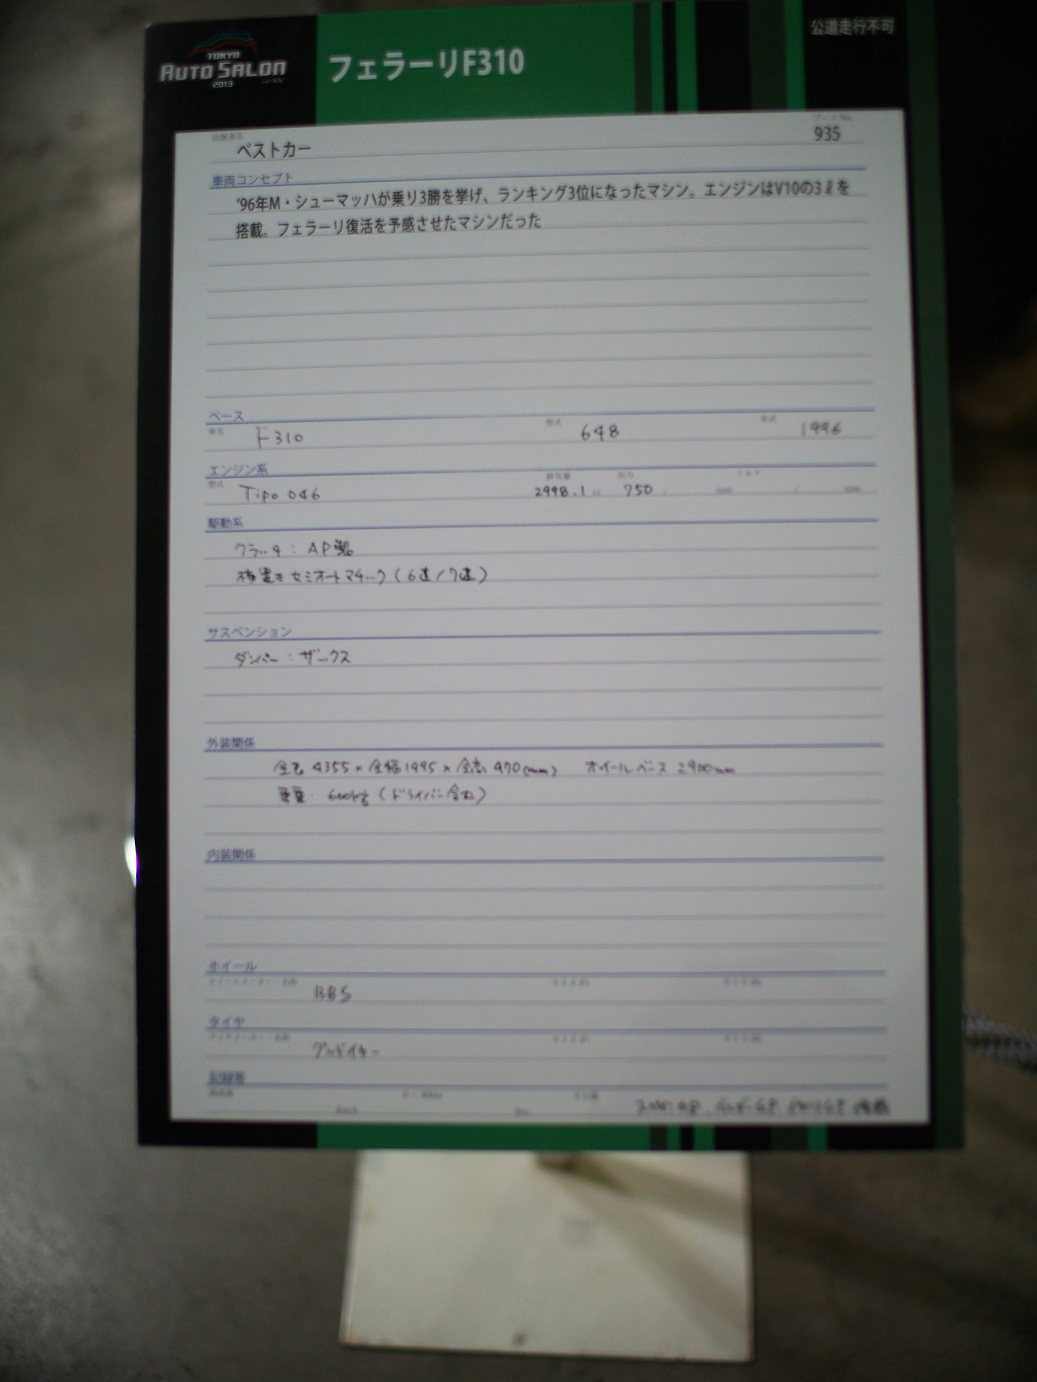 TOKYO
AUTO SALON
2013
フェラーリF310
公道走行不可
出展者名
ベストカー
935
車両コンセプト
'96年M・シューマッハが乗り3勝を挙げ、ランキング3位になったマシン。エンジンはV10の3ℓを
搭載。フェラーリ復活を予感させたマシンだった
ベース
車名 F310 型式 648 年式 1996
エンジン系
型式 Tipo 046 排気量 2998.1 cc 出力 750
駆動系
クラッチ：AP製
横置きセミオートマチック（6速/7速）
サスペンション
ダンパー：ザックス
外装関係
全長 4355×全幅1995×全高 970(mm) ホイールベース 2900mm
重量：600kg（ドライバー含む）
内装関係
ホイール
BBS
タイヤ
グッドイヤー
記録等